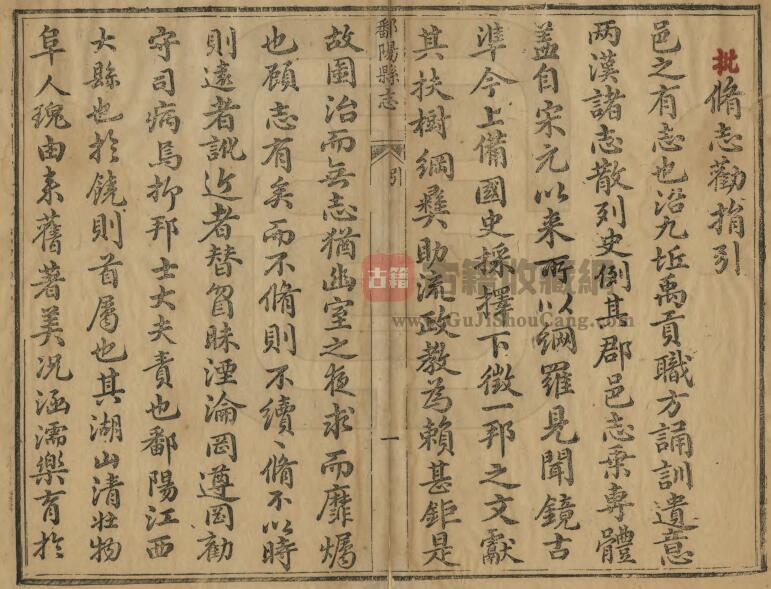 批脩志勸捐引
邑之有志也沿九坵禹貢職方誦訓遺意
两漢諸志散列史例其郡邑志乘專體
盖自宋元以来所以網羅見聞鏡古
準今上備國史採擇下徵一邦之文獻
其扶樹綱彜助流政教為賴甚鉅是
鄱陽縣志
引
一
故圄治而無志猶幽室之夜求而靡燭
也顧志有矣而不脩則不續〻脩不以時
則遠者訛近者替習昧湮淪罔遵罔勸
守司病焉抑邦士丈夫責也鄱陽江西
大縣也扵饒則首屬也其湖山清壮物
阜人瑰由来舊著美况涵濡樂育扵
古籍
古籍收藏網
www.GuJiShouCang.com